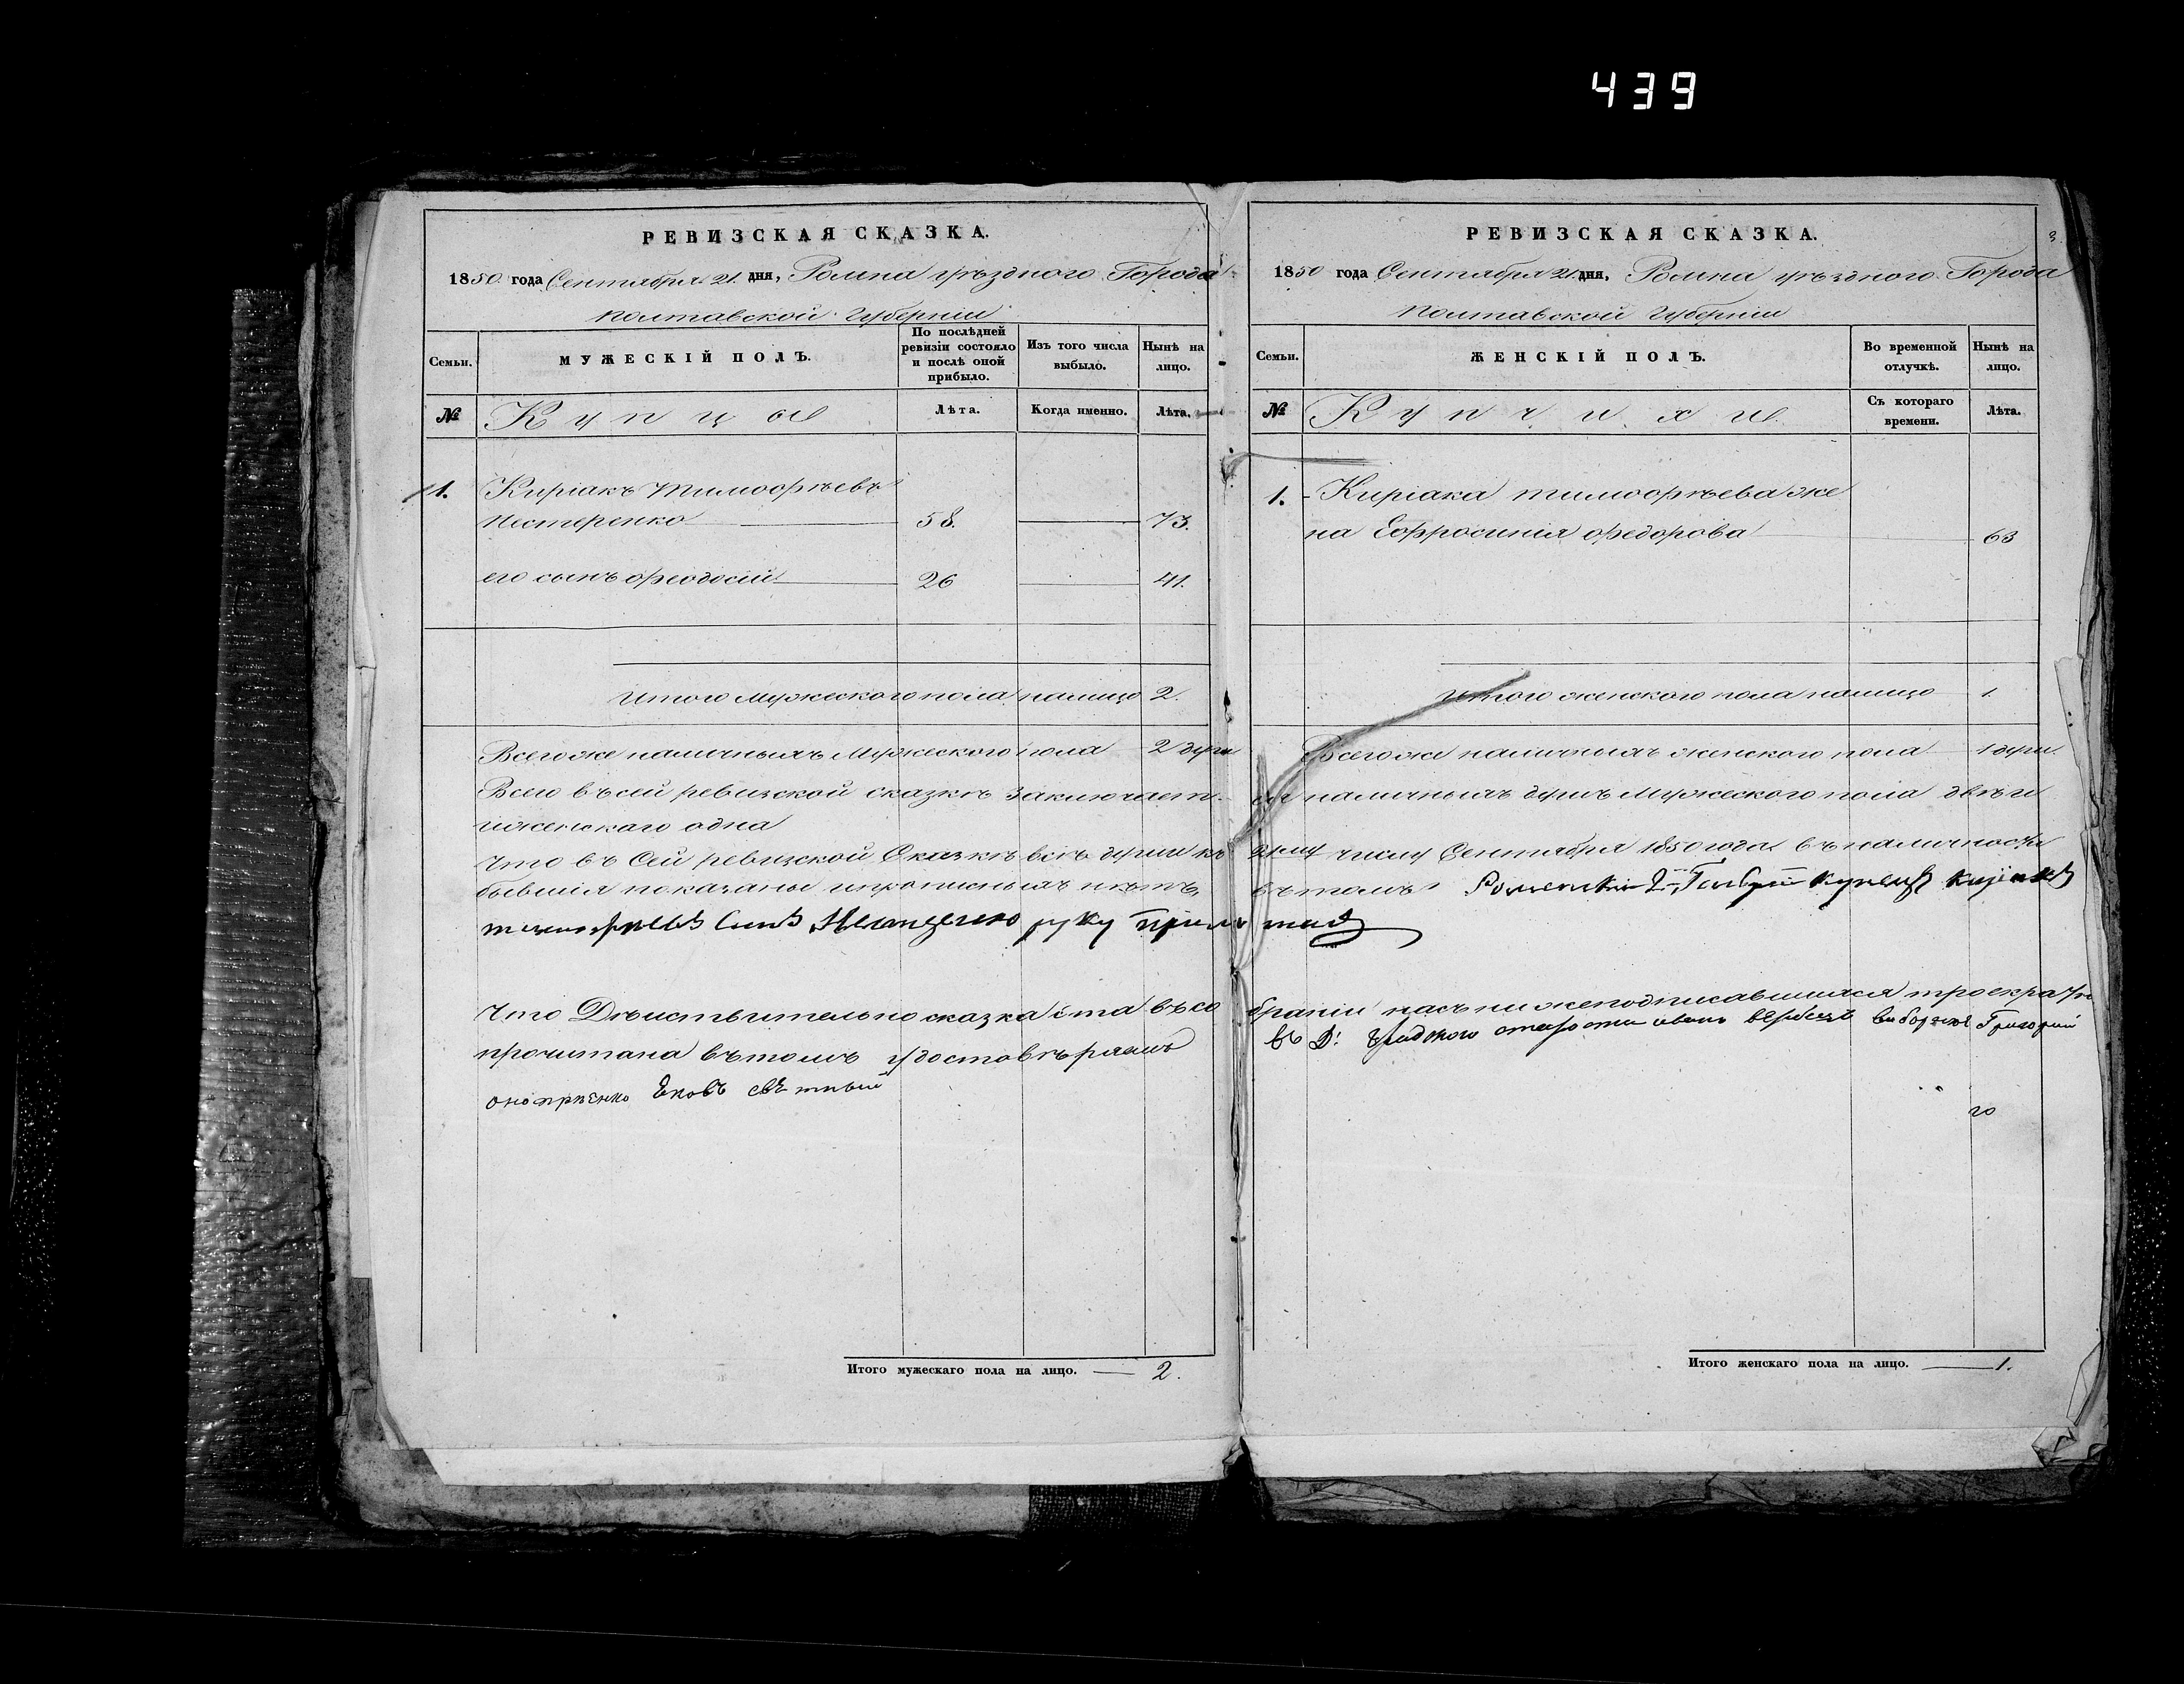 439
РЕВИЗСКАЯ СКАЗКА.
1850 года Сентября 21 дня, Ромна уѣзднаго Города
Полтавской Губерніи
Семьи.
МУЖЕСКІЙ ПОЛЪ.
По послѣдней ревизіи состояло и послѣ оной прибыло.
Изъ того числа выбыло.
Нынѣ на лицо.
№
Купцы
Лѣта.
Когда именно.
Лѣта.
1. Киріакъ Тимофѣевъ
Нестеренко 58. 73.
его сынъ Феодосій 26 41.
Итого мужескаго пола налицо 2.
Всего же наличныхъ Мужескаго пола 2 души
Всего въ сей ревизской сказкѣ заключает-
и женскаго одна
Что въ Сей ревизской Сказкѣ всѣ души къ
бывшія показаны и прописныхъ нѣтъ,
руку прило
Что Дѣиствительно сказка ета въ со
прочитана въ томъ удостовѣряемъ
РЕВИЗСКАЯ СКАЗКА.
3
1850 года Сентября 21 дня, Ромна уѣзднаго Города
Полтавской Губерніи
Семьи.
ЖЕНСКІЙ ПОЛЪ.
Во временной отлучкѣ.
Нынѣ на лицо.
№
Купчихи
Съ котораго времени.
Лѣта.
1. Киріака Тимофѣева же
на Ефросинія Федорова 63
Итого женскаго пола налицо 1.
Всего же наличныхъ женскаго пола 1 душ.
ся наличныхъ душъ Мужескаго пола двѣ и
21му числу Сентября 1850 года въ наличности
въ томъ Роменскій 2й Гильдіи купецъ Киріакъ
браніи насъ ниже подписавшихся троекратн
Григорій
го
Итого мужескаго пола на лицо. 2.
Итого женскаго пола на лицо. 1.